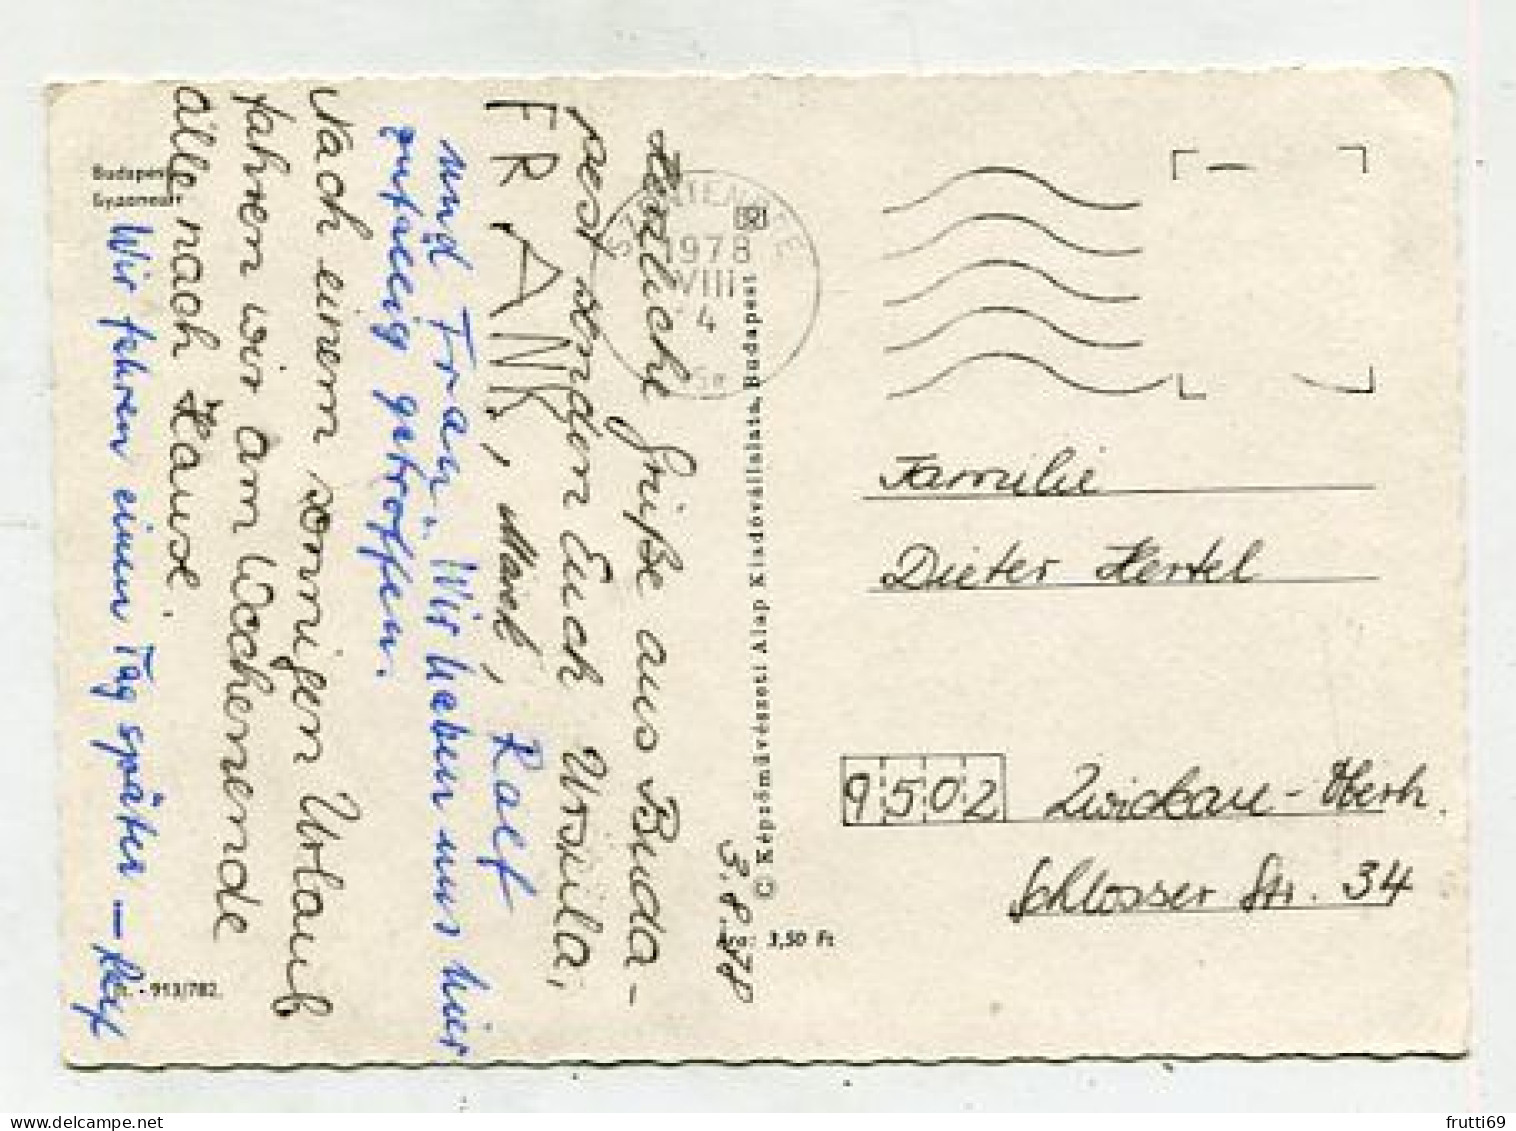 Budapest
Будапешт
Herzliche Grüße aus Buda-
pest senden Euch Ursula,
FRANK, Maik, Ralf
und Frau. Wir haben uns hier
zufällig getroffen.
Nach einem sonnigen Urlaub
fahren wir am Wochenende
alle nach Hause.
Wir fahren einen Tag später –
3.8.78
SZENTENDRE
1978
VIII
4
© Képzőművészeti Alap Kiadóvállalata, Budapest
Ára: 3,50 Ft
- 913/782.
Familie
Dieter Hertel
9502 Zwickau-Oberh.
Schlosser Str. 34
frutti69
www.delcampe.net